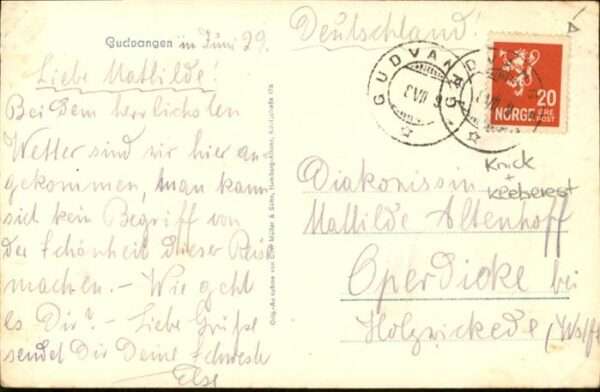 Gudvangen in Juni 29.
Liebe Mathilde!
Bei dem herrlichsten
Wetter sind wir hier an-
gekommen, man kann
sich kein Begriff von
der Schönheit dieser Reise
machen. - Wie geht
es Dir? - Liebe Grüße
sendet Dir Deine Schwester
Else
Müller & Sohn, Hamburg-Altona
Deutschland!
GUDVANGEN
20
NORGE ØRE
POST
Knick
+
Kleberest
Diakonissin
Mathilde Altenhoff
Operdicke bei
Holzwickede (Westf